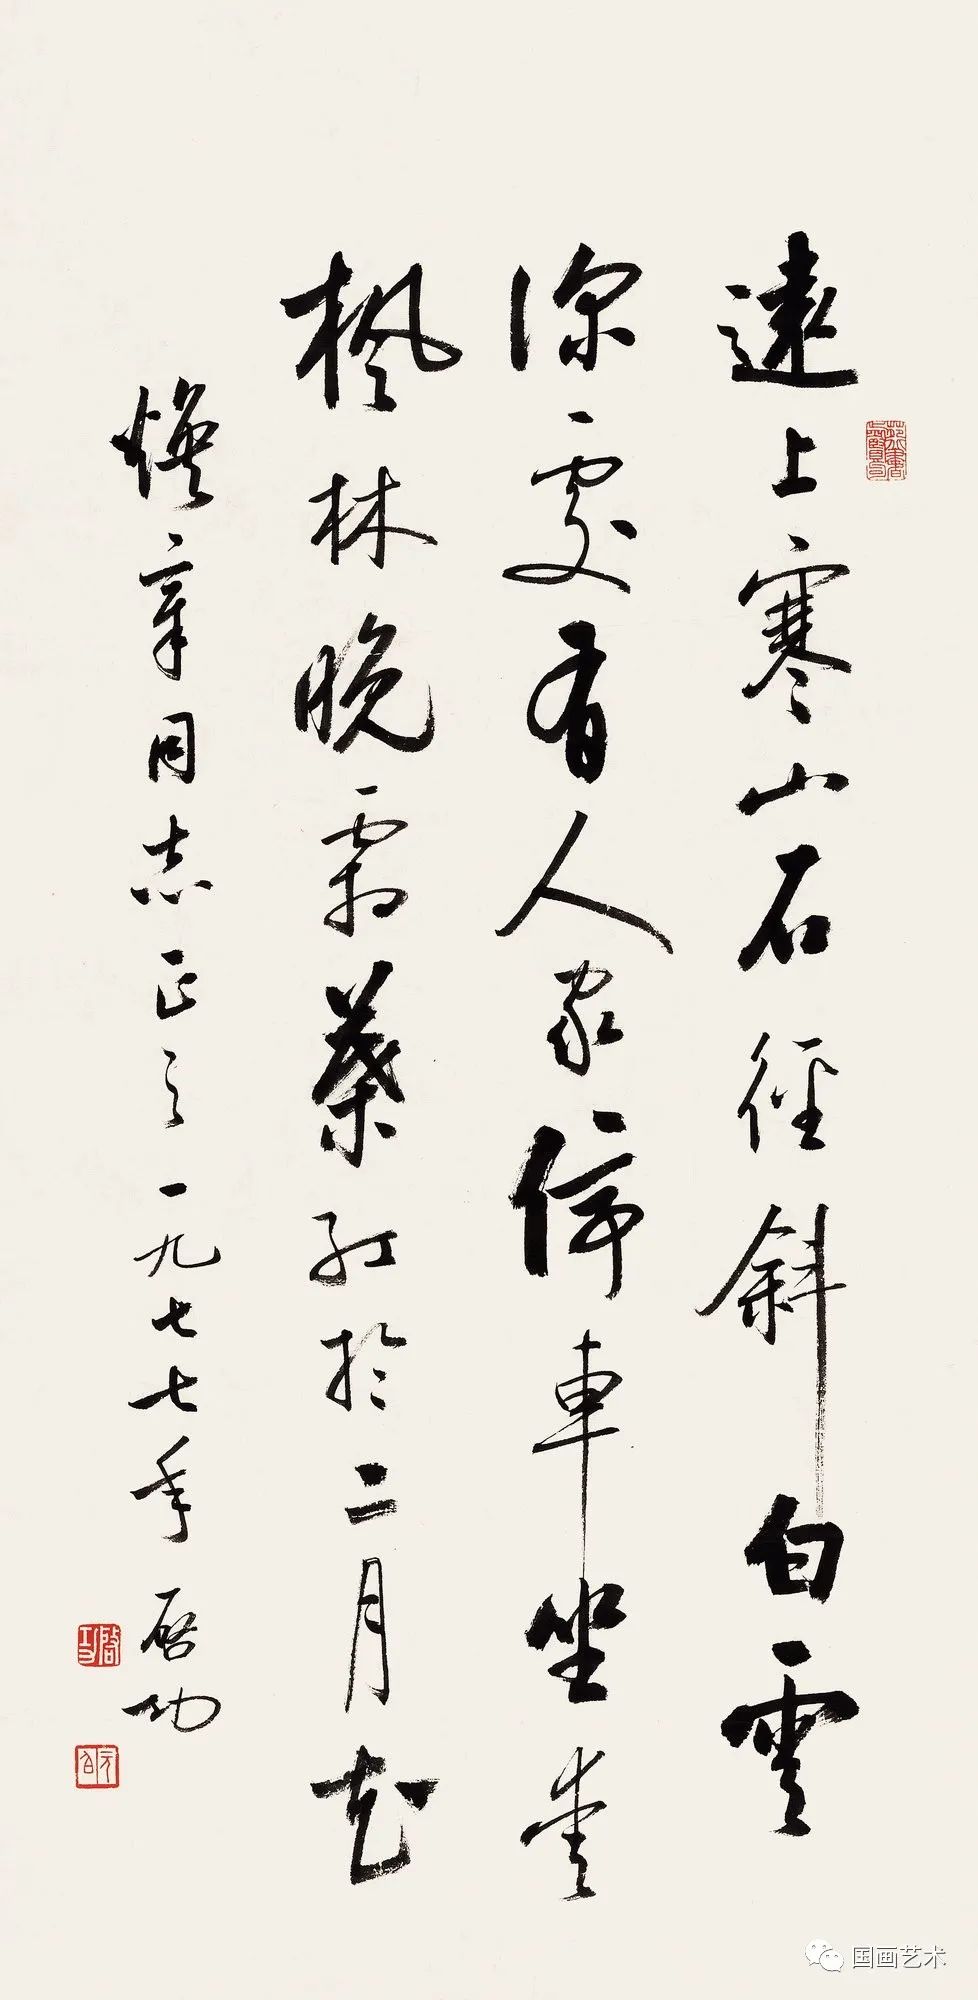 遠上寒山石徑斜白雲
深處有人家停車坐愛
楓林晚霜葉紅於二月花
煥章同志正之一九七七年 啓功
啓功
元白
国画艺术